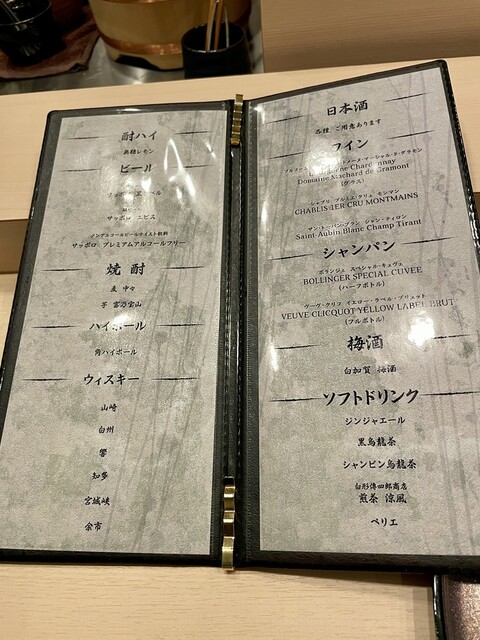 酎ハイ
無糖レモン
ビール
サッポロ エビス
ノンアルコールビールテイスト飲料
サッポロ プレミアムアルコールフリー
焼酎
麦 中々
芋 富乃宝山
ハイボール
角ハイボール
ウィスキー
山崎
白州
響
知多
宮城峡
余市
日本酒
各種 ご用意あります
ワイン
Chardonnay
Domaine Machard de Gramont
(グラス)
シャブリ プルミエ・クリュ モンマン
CHABLIS 1ER CRU MONTMAINS
サン・トーバン・ブラン シャン・ティロン
Saint-Aubin Blanc Champ Tirant
シャンパン
ボランジェ スペシャル・キュヴェ
BOLLINGER SPECIAL CUVEE
(ハーフボトル)
ヴーヴ・クリコ イエロー・ラベル・ブリュット
VEUVE CLICQUOT YELLOW LABEL BRUT
(フルボトル)
梅酒
白加賀 梅酒
ソフトドリンク
ジンジャエール
黒烏龍茶
シャンピン烏龍茶
白形傳四郎商店
煎茶 涼風
ペリエ